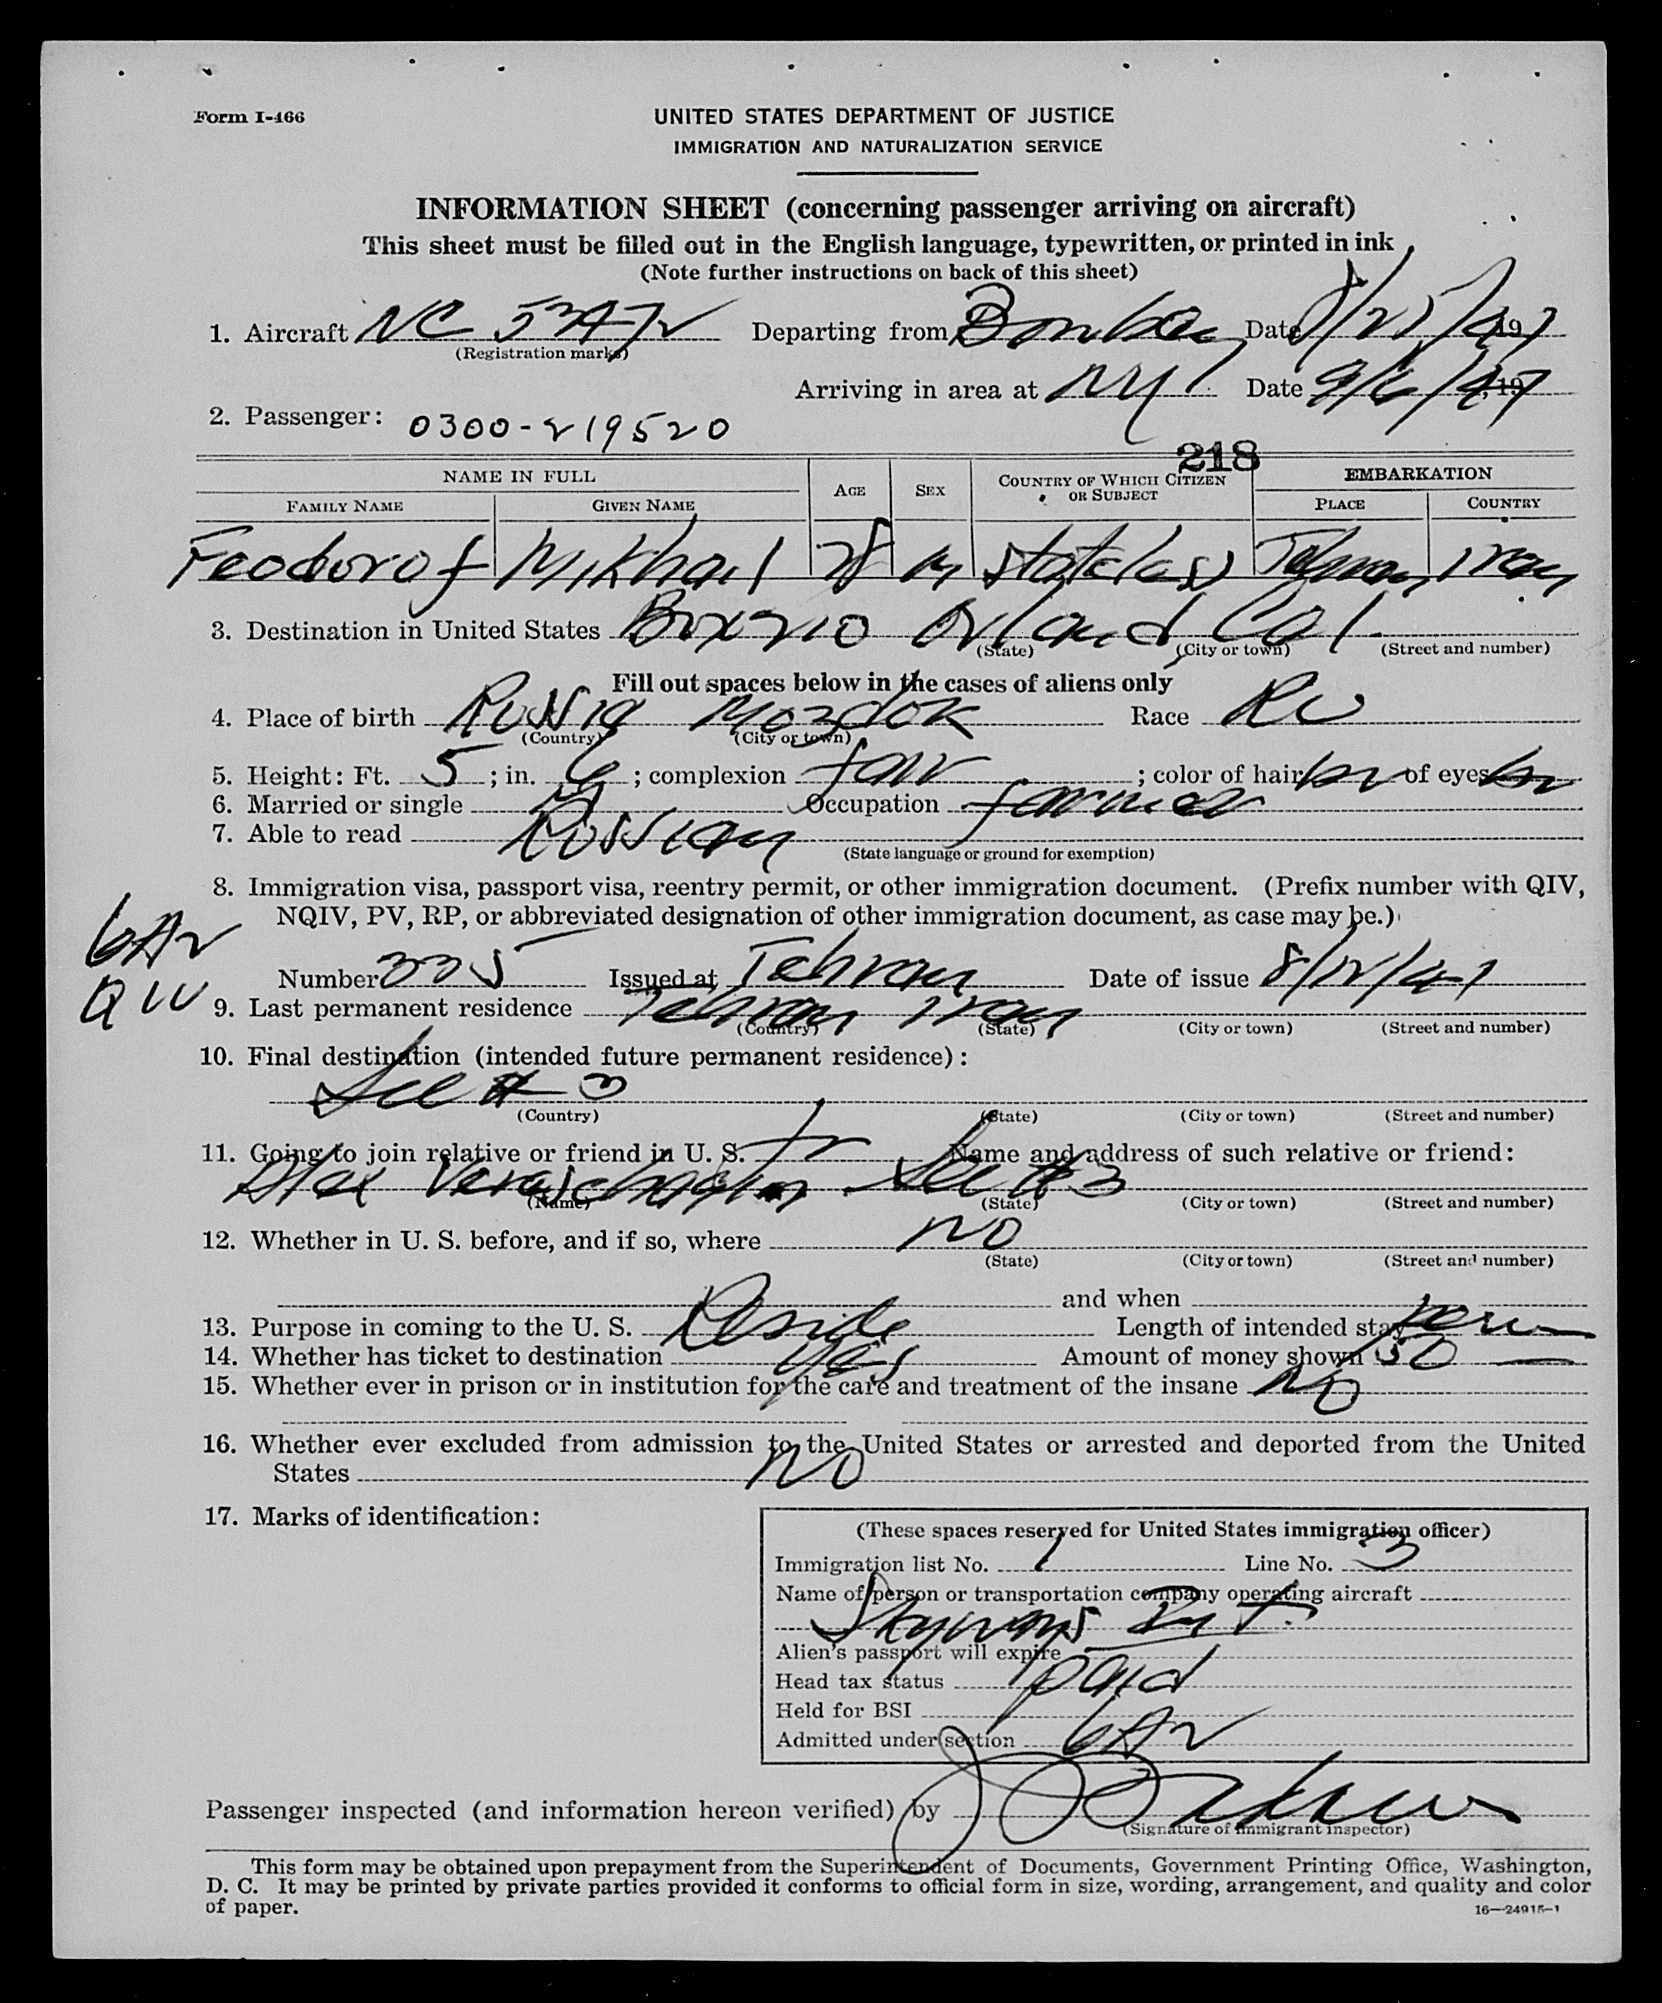 Form I-466
UNITED STATES DEPARTMENT OF JUSTICE
IMMIGRATION AND NATURALIZATION SERVICE
INFORMATION SHEET (concerning passenger arriving on aircraft)
This sheet must be filled out in the English language, typewritten, or printed in ink
(Note further instructions on back of this sheet)
1. Aircraft NC 53472 Departing from Bombay Date 8/25/47, 19
(Registration marks)
Arriving in area at NY Date 9/6/47, 19
2. Passenger: 0300-219520
218
NAME IN FULL AGE SEX COUNTRY OF WHICH CITIZEN OR SUBJECT EMBARKATION
FAMILY NAME GIVEN NAME PLACE COUNTRY
Feodorof Mikhail 28 M Stateless Tehran Iran
3. Destination in United States Box 210 Orland Cal.
(State) (City or town) (Street and number)
Fill out spaces below in the cases of aliens only
4. Place of birth Russia Mozdok Race Ru
(Country) (City or town)
5. Height: Ft. 5; in. 6; complexion fair; color of hair br of eyes br
6. Married or single Occupation farmer
7. Able to read Russian
(State language or ground for exemption)
8. Immigration visa, passport visa, reentry permit, or other immigration document. (Prefix number with QIV,
NQIV, PV, RP, or abbreviated designation of other immigration document, as case may be.)
6A2
Number 335 Issued at Tehran Date of issue 8/12/47
9. Last permanent residence Tehran Iran
(Country) (State) (City or town) (Street and number)
10. Final destination (intended future permanent residence):
See # 3
(Country) (State) (City or town) (Street and number)
11. Going to join relative or friend in U. S. fr Name and address of such relative or friend:
Alex See # 3
(Name) (State) (City or town) (Street and number)
12. Whether in U. S. before, and if so, where NO
(State) (City or town) (Street and number)
and when
13. Purpose in coming to the U. S. Reside Length of intended stay perm
14. Whether has ticket to destination yes Amount of money shown 50
15. Whether ever in prison or in institution for the care and treatment of the insane No
16. Whether ever excluded from admission to the United States or arrested and deported from the United
States NO
17. Marks of identification:
(These spaces reserved for United States immigration officer)
Immigration list No. 1 Line No. 3
Name of person or transportation company operating aircraft
Skyways Int.
Alien's passport will expire
Head tax status paid
Held for BSI
Admitted under section 6A2
Passenger inspected (and information hereon verified) by
(Signature of immigrant inspector)
This form may be obtained upon prepayment from the Superintendent of Documents, Government Printing Office, Washington,
D. C. It may be printed by private parties provided it conforms to official form in size, wording, arrangement, and quality and color
of paper.
16—24915-1